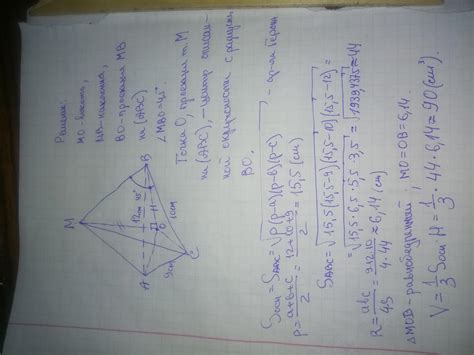 Рішення:
МО-висота,
МВ-похилена,
ВО-проекция МВ
на (АВС)
∠МВО=45°.
Точка О, проекция т. М
на (АВС), - центр описан-
ной окружности с радиусом
ВО.
M
A
B
C
O
H
12см
45°
10см
9см
Sосн = S△ABC = √p(p-a)(p-b)(p-c), - ф-ла Герона
p = a+b+c / 2 = 12+10+9 / 2 = 15,5 (см)
S△ABC = √15,5(15,5-9)(15,5-10)(15,5-12) =
= √15,5·6,5·5,5·3,5 = √1939,4375 ≈ 44
R = abc / 4S = 9·12·10 / 4·44 ≈ 6,14 (см)
△МОВ-равнобедренный, МО=ОВ=6,14.
V = 1/3 Sосн H = 1/3 · 44 · 6,14 ≈ 90 (см³)